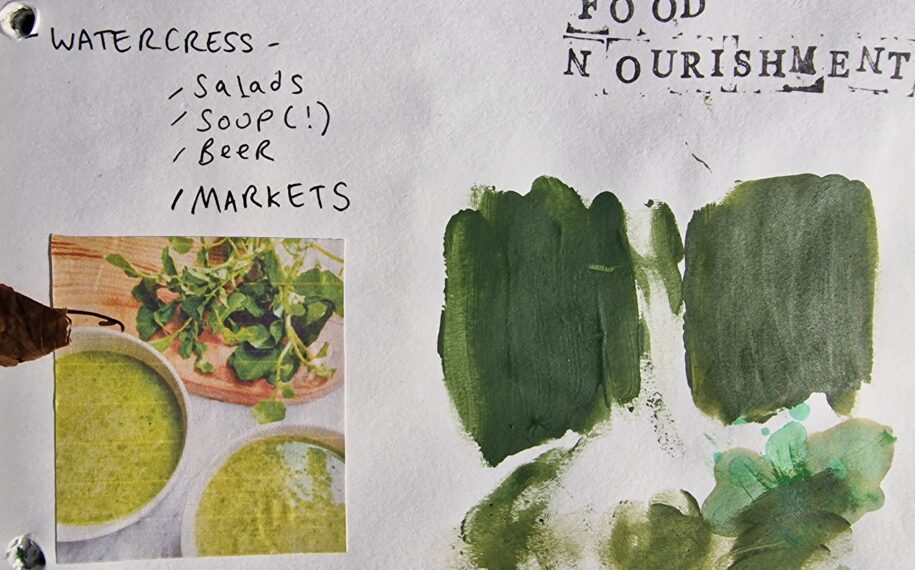 WATERCRESS -
/ Salads
/ SOUP (!)
/ BeeR
/ MARKETS
FOOD
NOURISHMENT